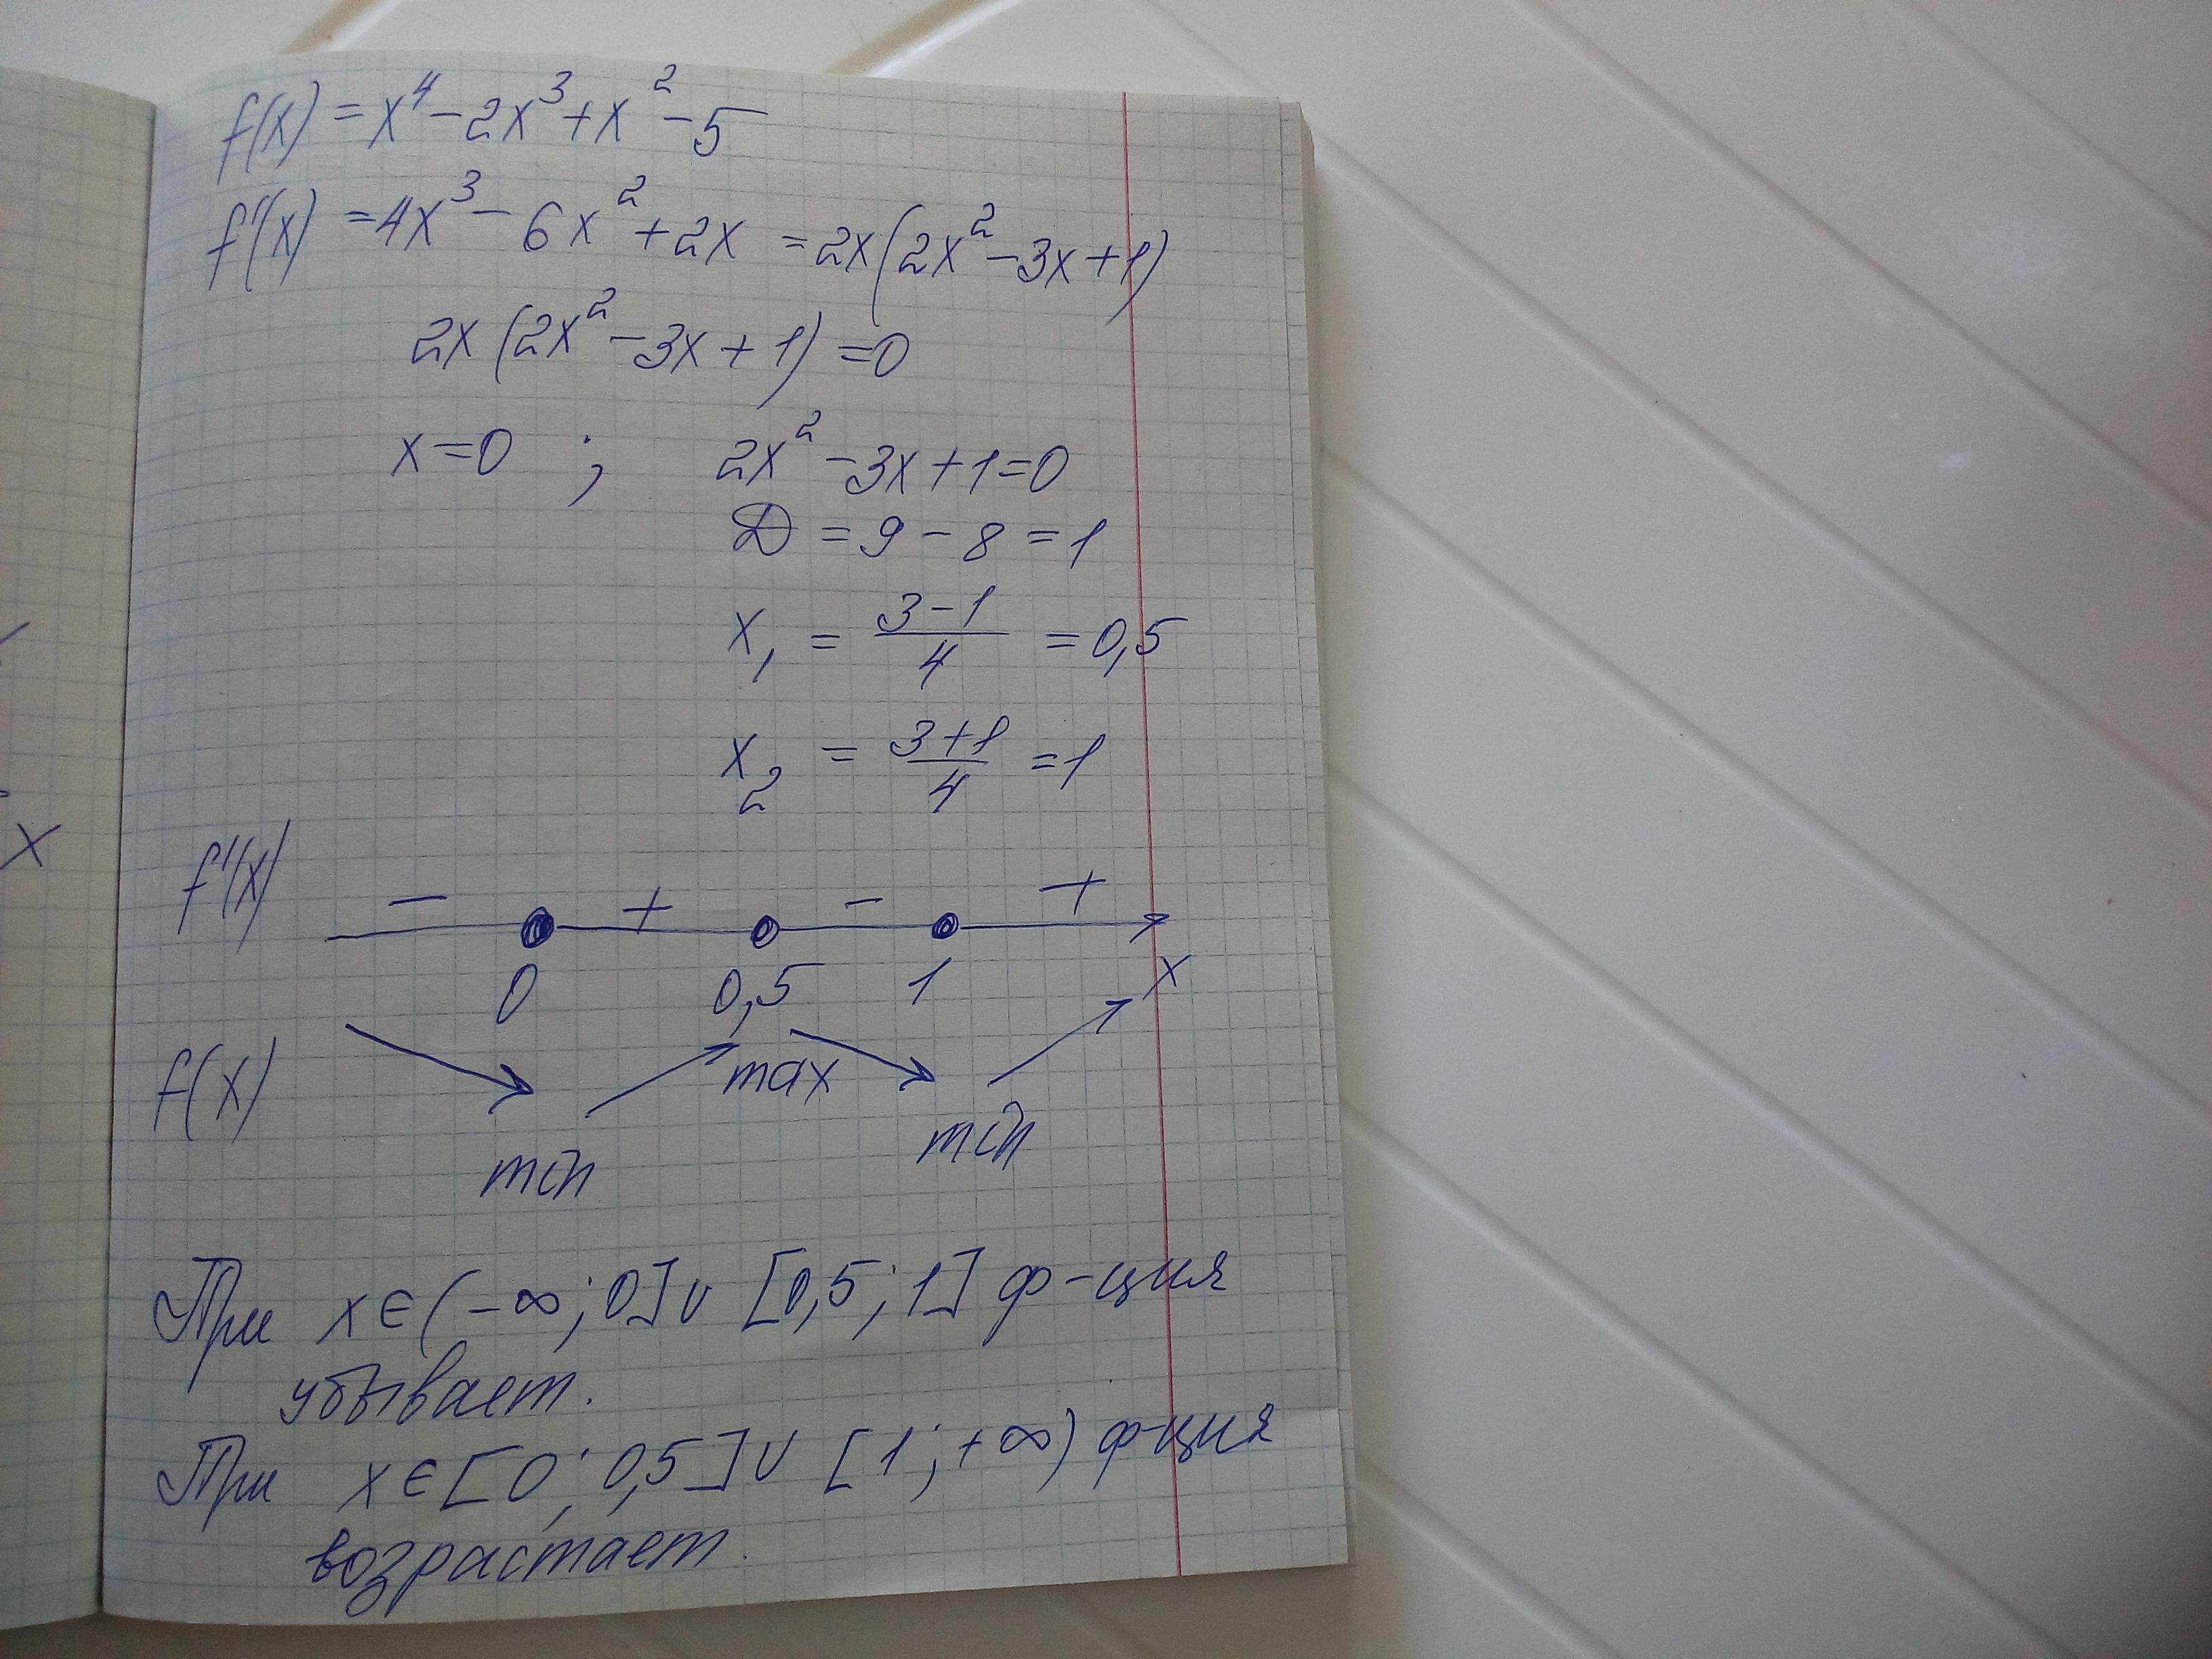 f(x) = x⁴ - 2x³ + x² - 5
f'(x) = 4x³ - 6x² + 2x = 2x(2x² - 3x + 1)
2x(2x² - 3x + 1) = 0
x = 0 ; 2x² - 3x + 1 = 0
D = 9 - 8 = 1
x₁ = (3-1)/4 = 0,5
x₂ = (3+1)/4 = 1
f'(x) - + - +
0 0,5 1 x
f(x) min max min
x
При x ∈ (-∞; 0] ∪ [0,5; 1] ф-ция
убывает.
При x ∈ [0; 0,5] ∪ [1; +∞) ф-ция
возрастает.